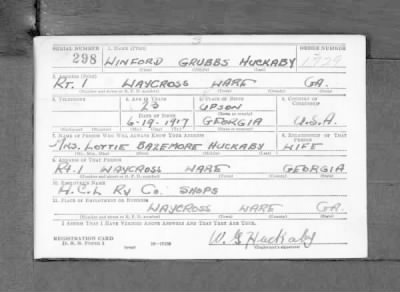 SERIAL NUMBER 1. NAME (Print) ORDER NUMBER
298 WINFORD GRUBBS HUCKABY 1729
(First) (Middle) (Last)
2. ADDRESS (Print)
RT. 1 WAYCROSS WARE GA.
(Number and street or R. F. D. number) (Town) (County) (State)
3. TELEPHONE 4. AGE IN YEARS 5. PLACE OF BIRTH 6. COUNTRY OF CITIZENSHIP
23 UPSON
DATE OF BIRTH (Town or county)
6-19-1917 GEORGIA U.S.A.
(Exchange) (Number) (Mo.) (Day) (Yr.) (State or country)
7. NAME OF PERSON WHO WILL ALWAYS KNOW YOUR ADDRESS 8. RELATIONSHIP OF THAT PERSON
MRS. LOTTIE BAZEMORE HUCKABY WIFE
(Mr., Mrs., Miss) (First) (Middle) (Last)
9. ADDRESS OF THAT PERSON
Rt. 1 WAYCROSS WARE GEORGIA
(Number and street or R. F. D. number) (Town) (County) (State)
10. EMPLOYER'S NAME
A.C.L Ry Co. SHOPS
11. PLACE OF EMPLOYMENT OR BUSINESS
WAYCROSS WARE GA.
(Number and street or R. F. D. number) (Town) (County) (State)
I AFFIRM THAT I HAVE VERIFIED ABOVE ANSWERS AND THAT THEY ARE TRUE.
REGISTRATION CARD
D. S. S. FORM 1 16-17105 W. G. Huckaby
(Registrant's signature)